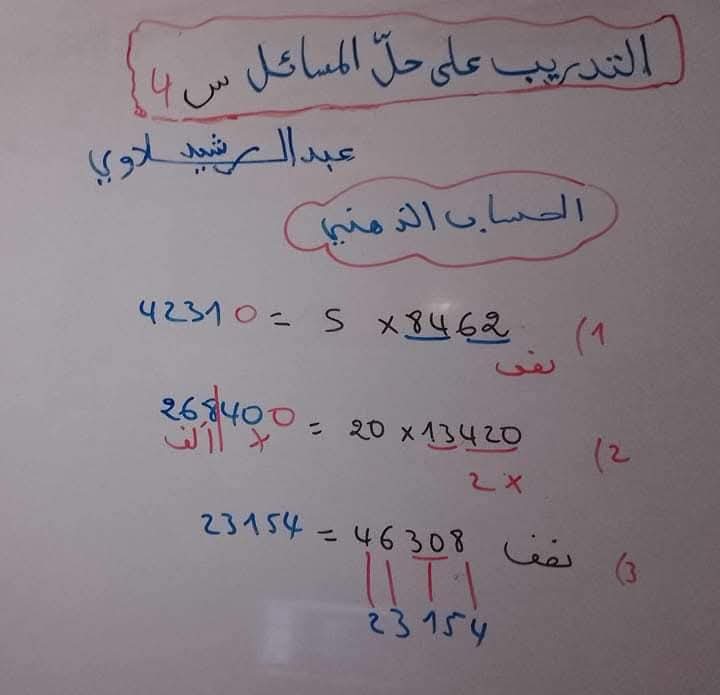 التدريب على حلّ المسائل س 4
عبد الرشيد سلاوي
الحساب الذهني
1) 8462 × 5 = 42310
نصف
2) 13420 × 20 = 268400
ألف ×
× 2
3) نصف 46308 = 23154
23154